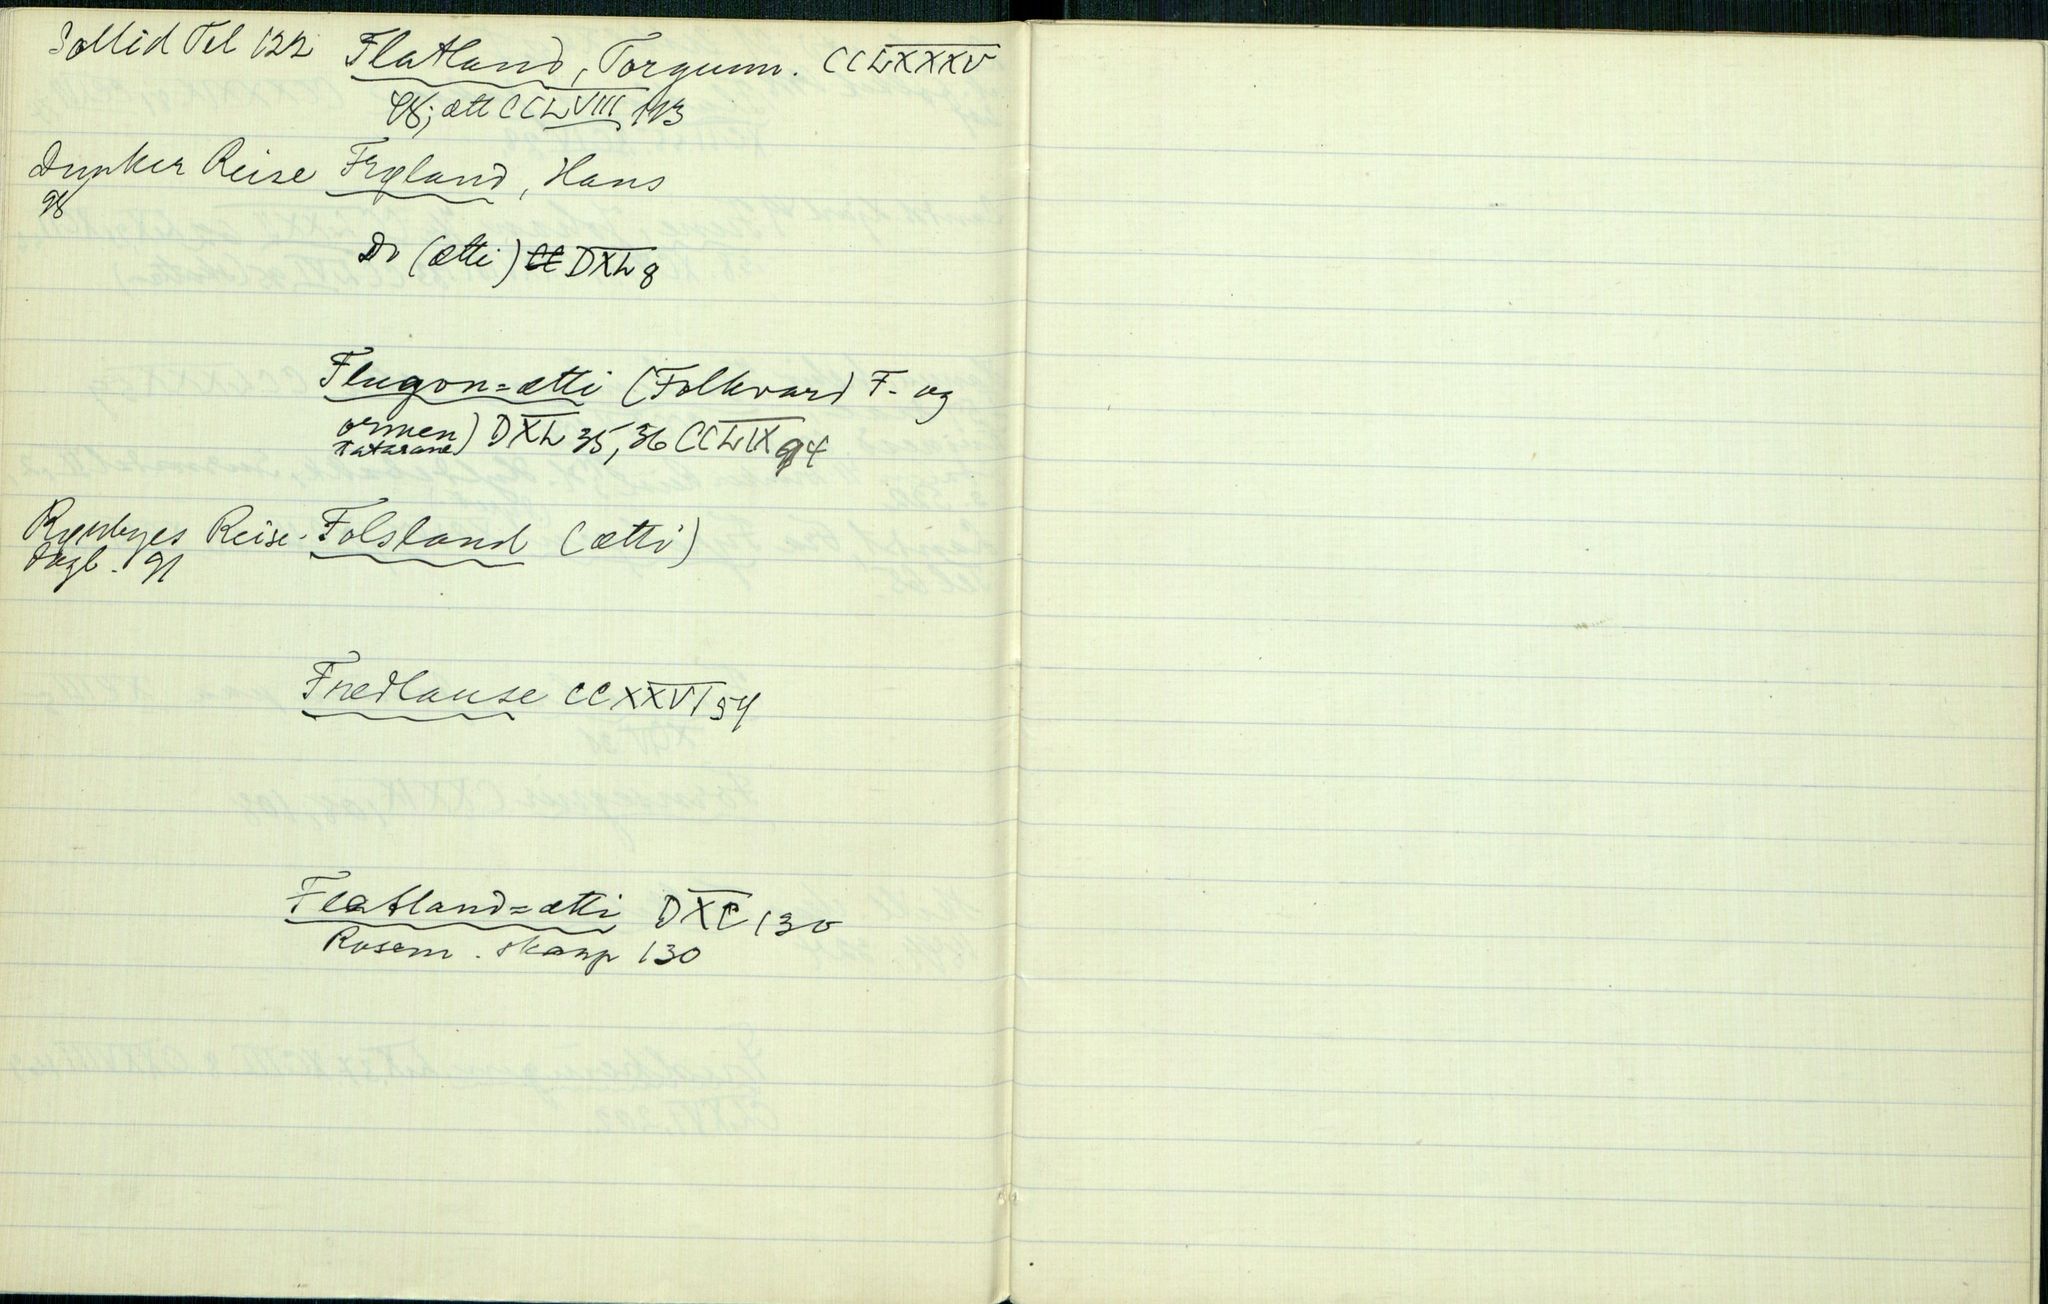 Sollid Tel 122 Flatland, Torgunn. CCLXXXV
98; ætt CCLVIII 113
Dunker Reise Frøland, Hans
98
Do (ætti) DXL 8
Flugon=ætti (Folkvard F. og
ormen) DXL 35, 36 CCLIX 94
Tatarane
Reise- Folsland (ætti)
dagb. 91
Fredlause CCXXVI 54
Flatland=ætti DXC 130
Rosem. skaap 130